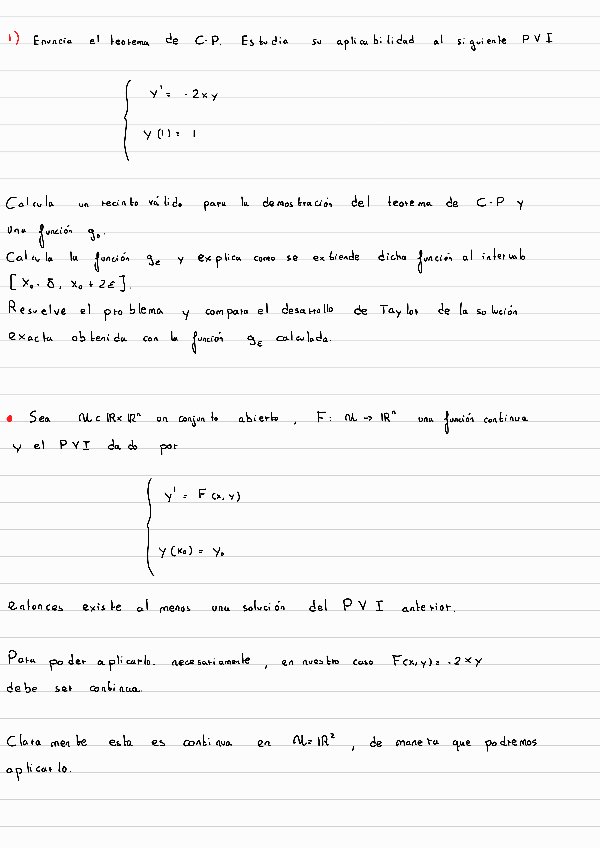 1) Enuncia el teorema de C.P. Estudia su aplicabilidad al siguiente PVI
y' = -2xy
y(1) = 1
Calcula un recinto válido para la demostración del teorema de C-P y
una función g₀.
Calcula la función gε y explica como se extiende dicha función al intervalo
[x₀-δ, x₀+2ε].
Resuelve el problema y compara el desarrollo de Taylor de la solución
exacta obtenida con la función gε calculada.
• Sea U ⊂ ℝ×ℝⁿ un conjunto abierto, F: U → ℝⁿ una función continua
y el PVI dado por
y' = F(x,y)
y(x₀) = y₀
entonces existe al menos una solución del PVI anterior.
Para poder aplicarlo, necesariamente, en nuestro caso F(x,y) = -2xy
debe ser continua.
Claramente esta es continua en U=ℝ², de manera que podremos
aplicarlo.